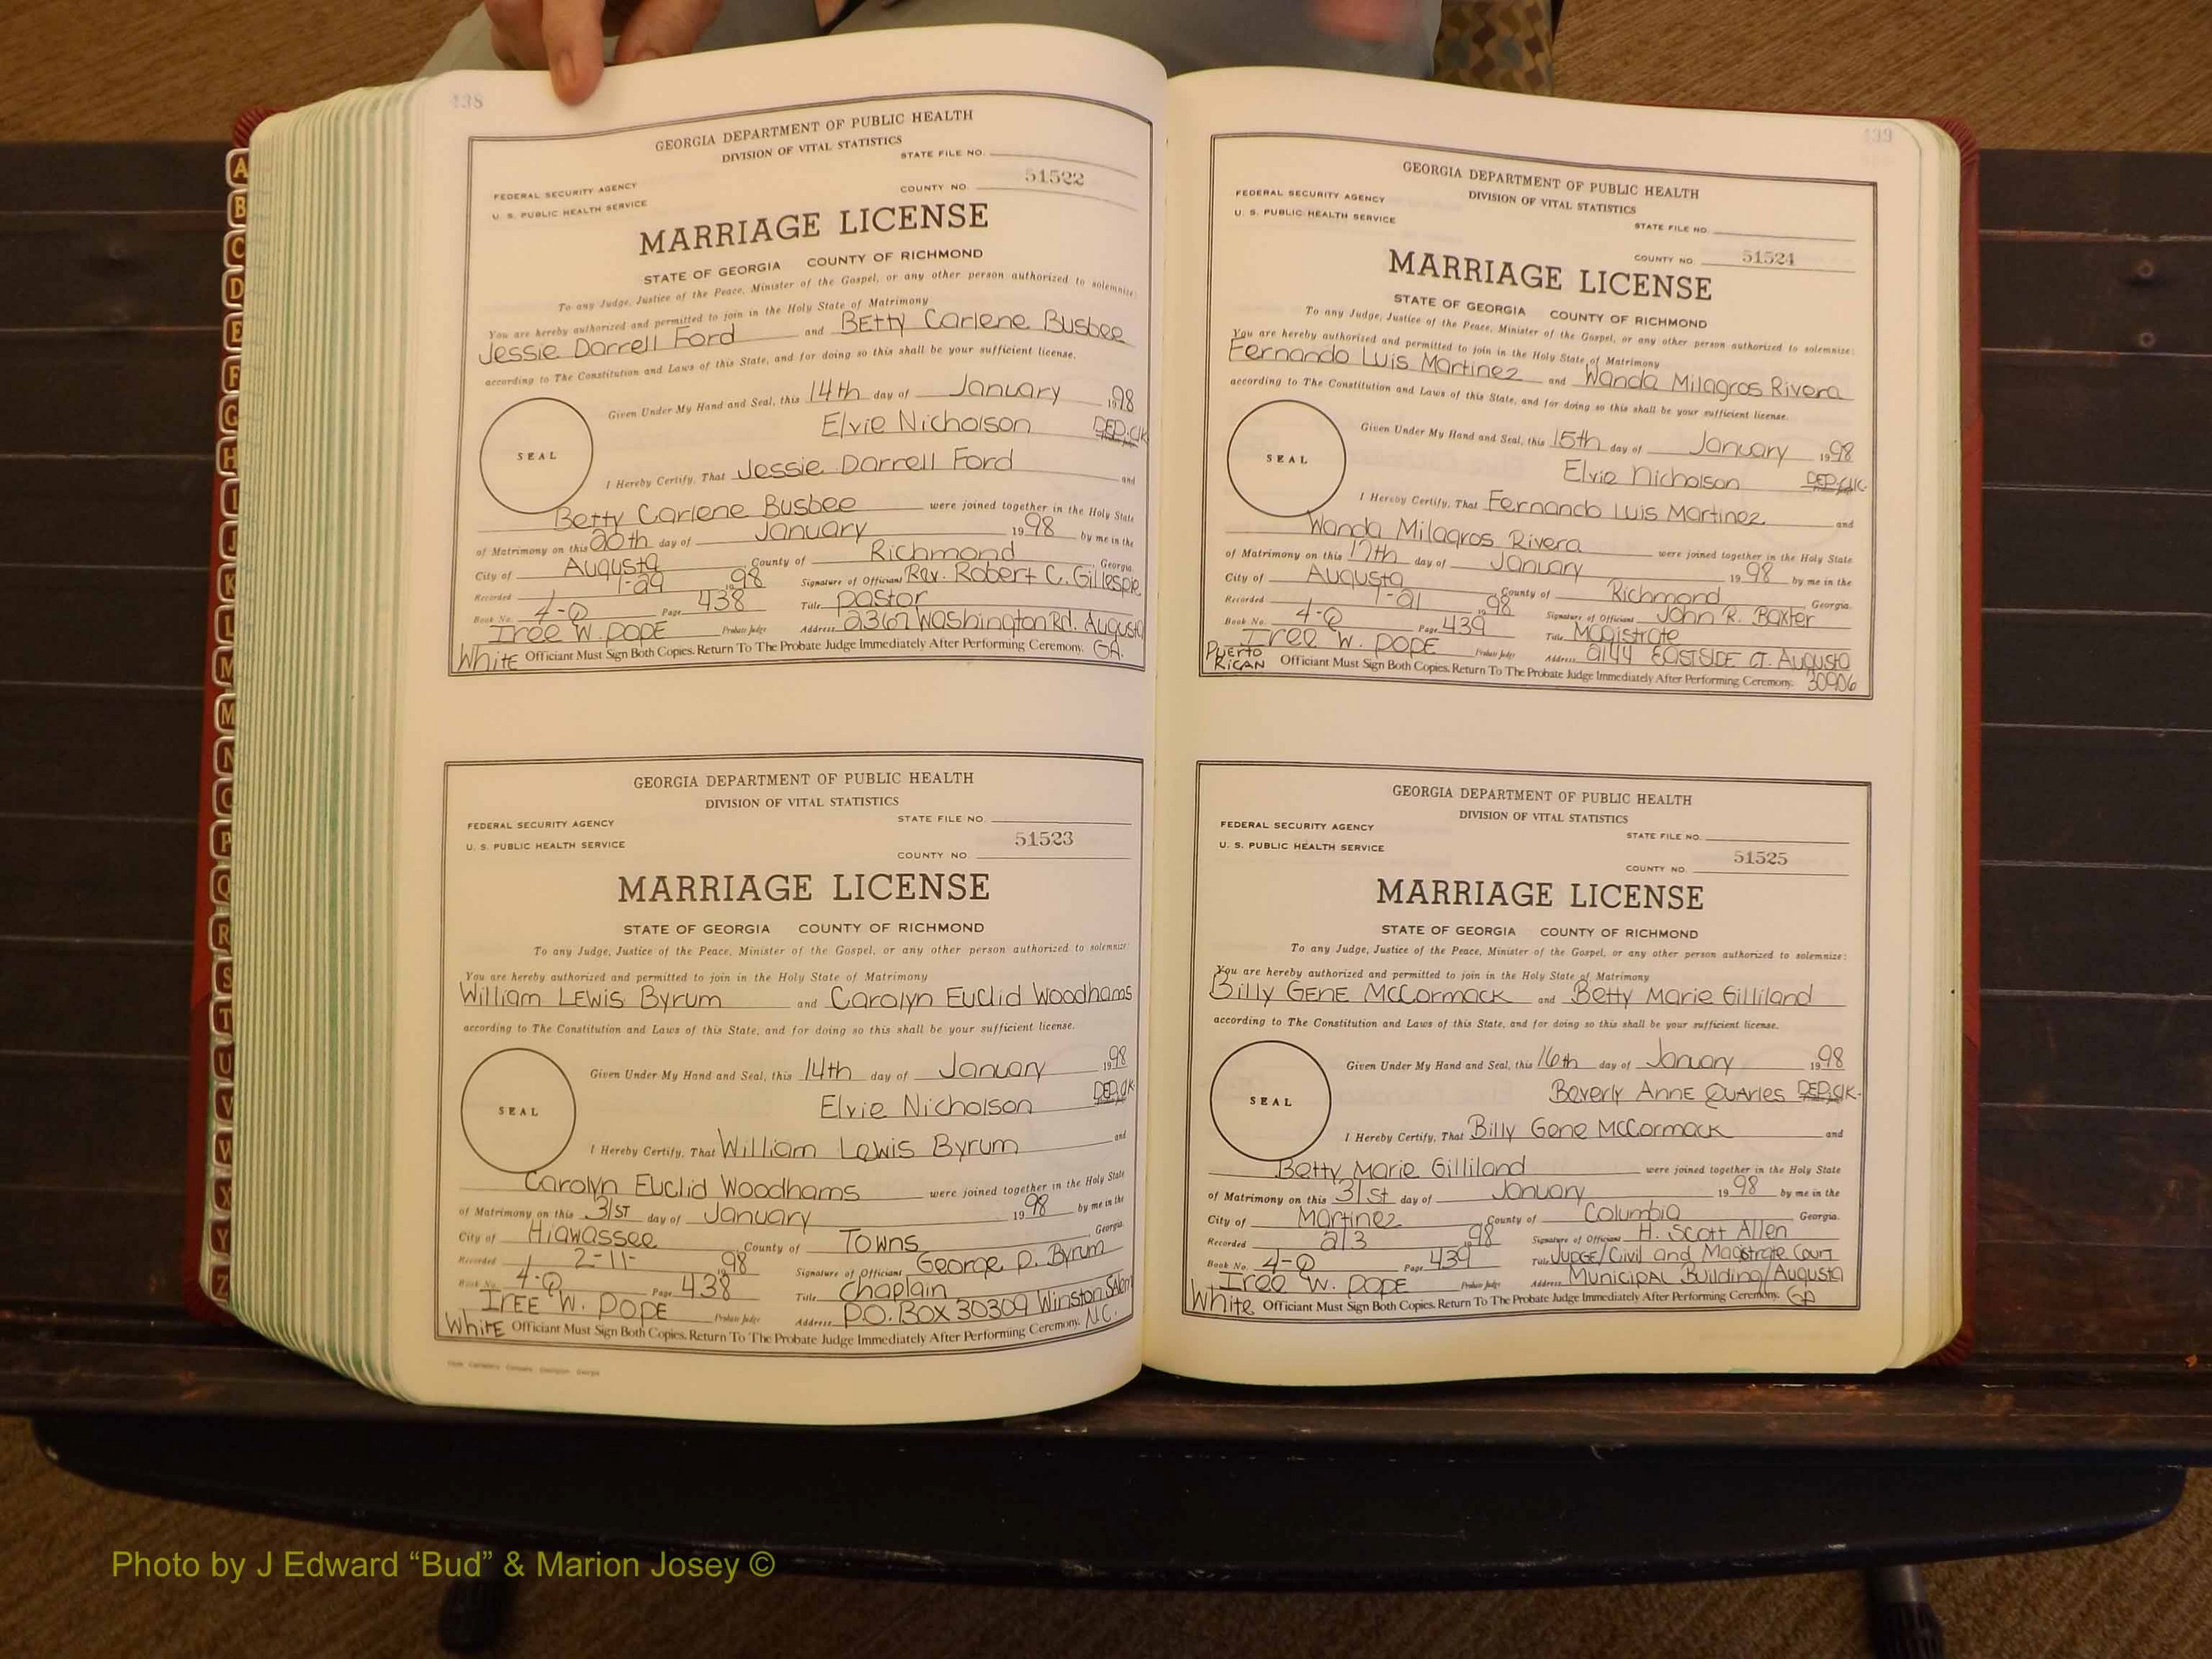 A
B
C
D
E
F
G
H
I
J
K
L
M
N
O
P
Q
R
S
T
U
V
W
X
Y
Z
438
GEORGIA DEPARTMENT OF PUBLIC HEALTH
DIVISION OF VITAL STATISTICS
STATE FILE NO.
FEDERAL SECURITY AGENCY
U. S. PUBLIC HEALTH SERVICE
COUNTY NO. 51522
MARRIAGE LICENSE
STATE OF GEORGIA COUNTY OF RICHMOND
To any Judge, Justice of the Peace, Minister of the Gospel, or any other person authorized to solemnize:
You are hereby authorized and permitted to join in the Holy State of Matrimony
Jessie Darrell Ford and Betty Carlene Busbee
according to The Constitution and Laws of this State, and for doing so this shall be your sufficient license.
Given Under My Hand and Seal, this 14th day of January 1998
Elvie Nicholson DEP. Clk
SEAL
I Hereby Certify, That Jessie Darrell Ford and
Betty Carlene Busbee were joined together in the Holy State
of Matrimony on this 20th day of January 1998 by me in the
City of Augusta County of Richmond Georgia.
Recorded 1-29 1998 Signature of Officiant Rev. Robert C. Gillespie
Book No. 4-Q Page 438 Title Pastor
Iree W. Pope Probate Judge Address 2367 Washington Rd. Augusta
White Officiant Must Sign Both Copies. Return To The Probate Judge Immediately After Performing Ceremony. GA.
GEORGIA DEPARTMENT OF PUBLIC HEALTH
DIVISION OF VITAL STATISTICS
STATE FILE NO.
FEDERAL SECURITY AGENCY
U. S. PUBLIC HEALTH SERVICE
COUNTY NO. 51523
MARRIAGE LICENSE
STATE OF GEORGIA COUNTY OF RICHMOND
To any Judge, Justice of the Peace, Minister of the Gospel, or any other person authorized to solemnize:
You are hereby authorized and permitted to join in the Holy State of Matrimony
William Lewis Byrum and Carolyn Euclid Woodhams
according to The Constitution and Laws of this State, and for doing so this shall be your sufficient license.
Given Under My Hand and Seal, this 14th day of January 1998
Elvie Nicholson DEP. Clk
SEAL
I Hereby Certify, That William Lewis Byrum and
Carolyn Euclid Woodhams were joined together in the Holy State
of Matrimony on this 31st day of January 1998 by me in the
City of Hiawassee County of Towns Georgia.
Recorded 2-11- 1998 Signature of Officiant George P. Byrum
Book No. 4-Q Page 438 Title Chaplain
Iree W. Pope Probate Judge Address P.O. Box 30309 Winston Salem
White Officiant Must Sign Both Copies. Return To The Probate Judge Immediately After Performing Ceremony. N.C.
439
GEORGIA DEPARTMENT OF PUBLIC HEALTH
DIVISION OF VITAL STATISTICS
FEDERAL SECURITY AGENCY
U. S. PUBLIC HEALTH SERVICE
STATE FILE NO.
COUNTY NO 51524
MARRIAGE LICENSE
STATE OF GEORGIA COUNTY OF RICHMOND
To any Judge, Justice of the Peace, Minister of the Gospel, or any other person authorized to solemnize:
You are hereby authorized and permitted to join in the Holy State of Matrimony
Fernando Luis Martinez and Wanda Milagros Rivera
according to The Constitution and Laws of this State, and for doing so this shall be your sufficient license.
Given Under My Hand and Seal, this 15th day of January 1998
Elvie Nicholson DEP. Clk.
SEAL
I Hereby Certify, That Fernando Luis Martinez and
Wanda Milagros Rivera were joined together in the Holy State
of Matrimony on this 17th day of January 1998 by me in the
City of Augusta County of Richmond Georgia.
Recorded 1-21 1998 Signature of Officiant John R. Baxter
Book No. 4-Q Page 439 Title Magistrate
Iree W. Pope Probate Judge Address 2144 Eastside Ct. Augusta
Puerto Rican Officiant Must Sign Both Copies. Return To The Probate Judge Immediately After Performing Ceremony. 30906
GEORGIA DEPARTMENT OF PUBLIC HEALTH
DIVISION OF VITAL STATISTICS
FEDERAL SECURITY AGENCY
U. S. PUBLIC HEALTH SERVICE
STATE FILE NO.
COUNTY NO. 51525
MARRIAGE LICENSE
STATE OF GEORGIA COUNTY OF RICHMOND
To any Judge, Justice of the Peace, Minister of the Gospel, or any other person authorized to solemnize:
You are hereby authorized and permitted to join in the Holy State of Matrimony
Billy Gene McCormack and Betty Marie Gilliland
according to The Constitution and Laws of this State, and for doing so this shall be your sufficient license.
Given Under My Hand and Seal, this 16th day of January 1998
Beverly Anne Quarles DEP. Clk.
SEAL
I Hereby Certify, That Billy Gene McCormack and
Betty Marie Gilliland were joined together in the Holy State
of Matrimony on this 31st day of January 1998 by me in the
City of Martinez County of Columbia Georgia.
Recorded 2/3 1998 Signature of Officiant H. Scott Allen
Book No. 4-Q Page 439 Title Judge/Civil and Magistrate Court
Iree W. Pope Probate Judge Address Municipal Building/Augusta
White Officiant Must Sign Both Copies. Return To The Probate Judge Immediately After Performing Ceremony. GA
Photo by J Edward “Bud” & Marion Josey ©